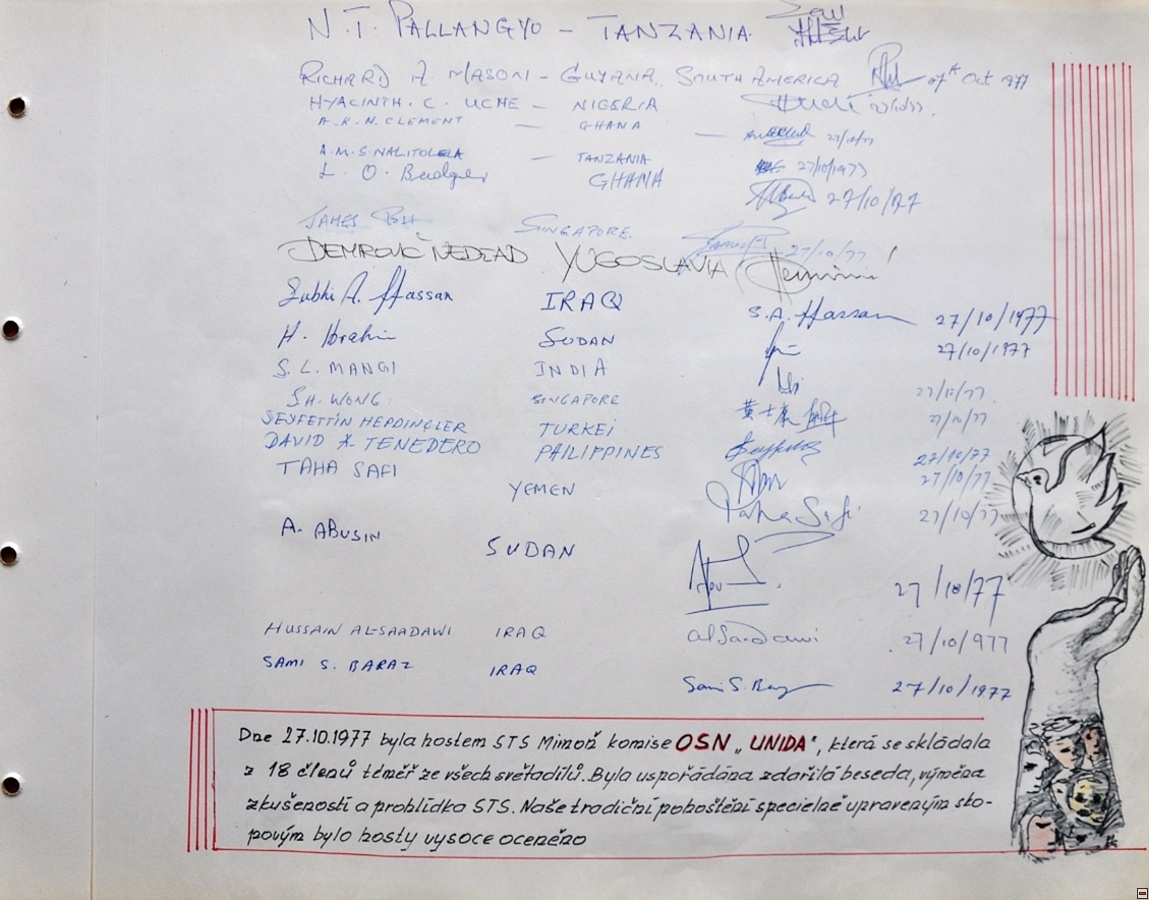 N. T. PALLANGYO – TANZANIA
RICHARD A. MASON – GUYANA, SOUTH AMERICA 27th Oct 1977
HYACINTH. C. UCHE – NIGERIA
A. K. N. CLEMENT – GHANA – 27/10/77
A. M. S. NALITOLELA – TANZANIA 27/10/1977
L. O. Badger GHANA 27/10/77
JAMES SINGAPORE 27/10/77
DEMIROVIĆ NEDŽAD YUGOSLAVIA
Subhi A. Hassan IRAQ S. A. Hassan 27/10/1977
H. Ibrahim SUDAN 27/10/1977
S. L. MANGI INDIA 27/10/77
S.H. WONG SINGAPORE 27/10/77
SEYFETTİN TURKEI 27/10/77
DAVID A. TENEDERO PHILIPPINES 27/10/77
TAHA SAFI YEMEN Taha Safi 27/10/77
A. ABUSIN SUDAN 27/10/77
HUSSAIN AL-SAADAWI IRAQ alSaadawi 27/10/977
SAMI S. BARAZ IRAQ Sami S. 27/10/1977
Dne 27.10.1977 byla hostem STS Mimoň komise OSN „UNIDA“, která se skládala
z 18 členů téměř ze všech světadílů. Byla uspořádána zdařilá beseda, výměna
zkušeností a prohlídka STS. Naše tradiční pohoštění specielně upraveným sto-
povým bylo hosty vysoce oceněno